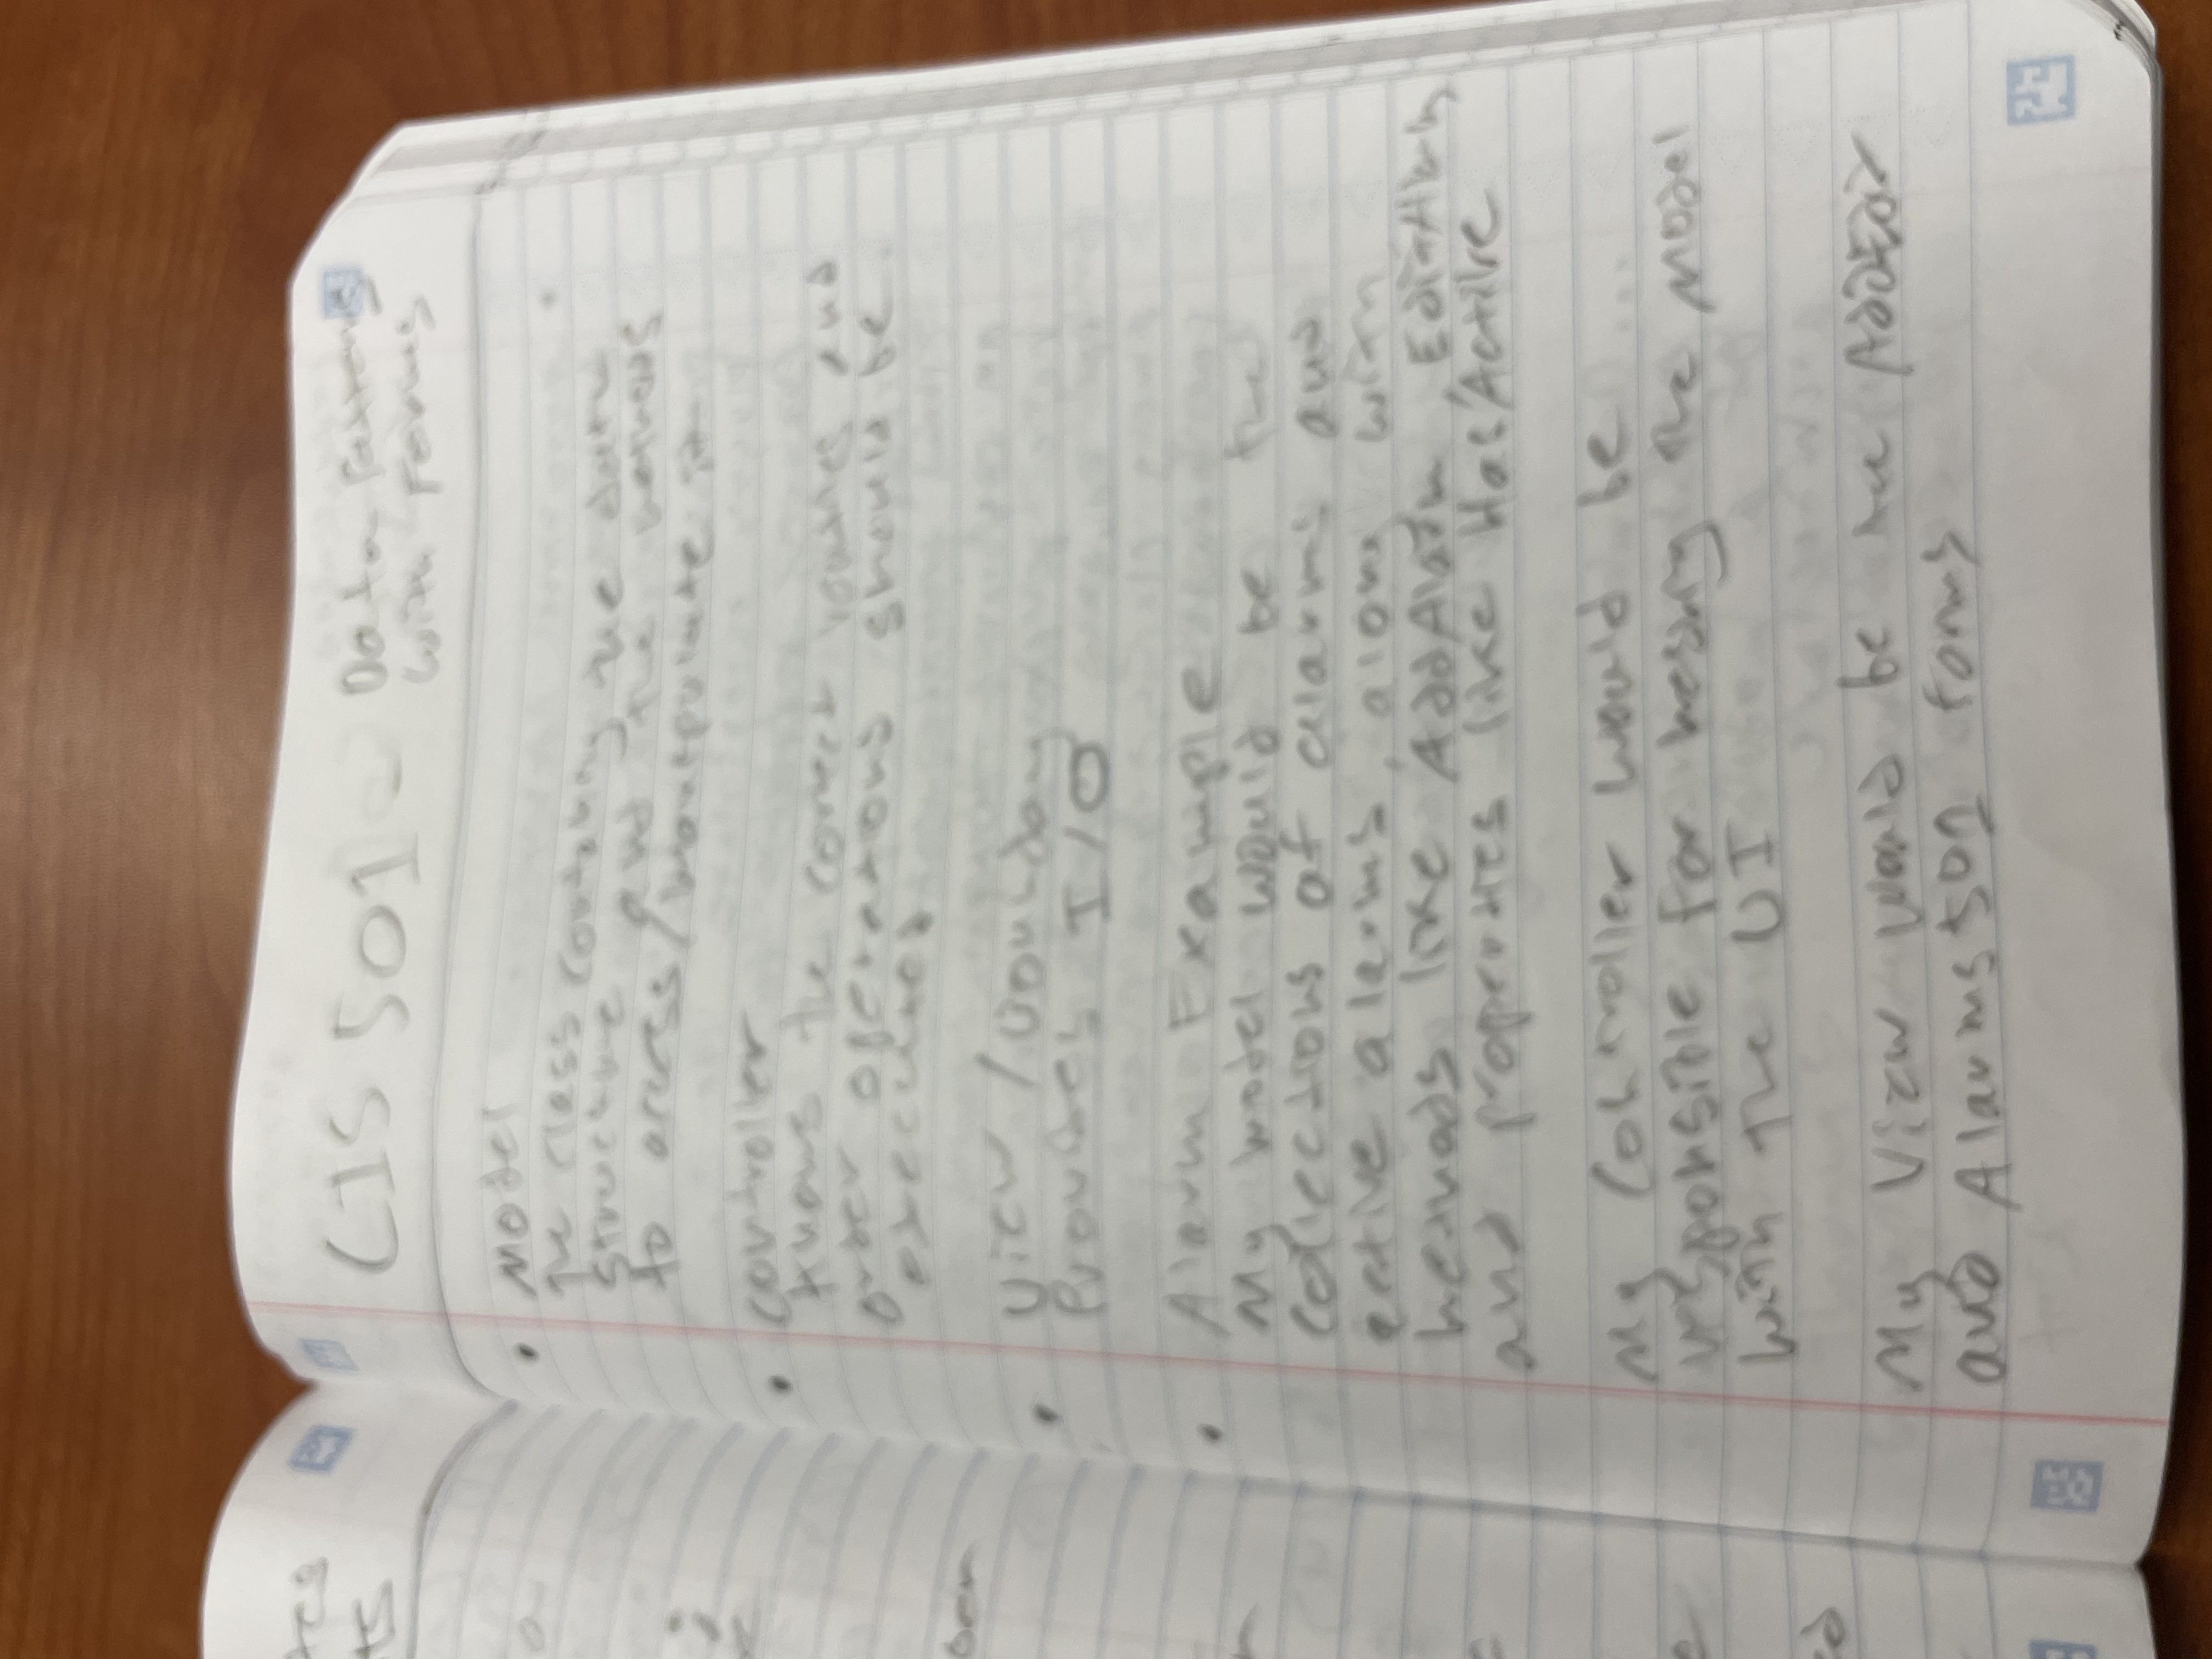 CIS 501 - Data Patterns
with Forms
• Model
The class containing the data
structure and the methods
to access/manipulate it
• Controller
knows the correct routines and
order operations should be
executed
• View / Boundary
Provides I/O
• Alarm Example
My model would be the
collections of alarms and
active alarms, along with
methods like AddAlarm, EditAlarm
and properties like HasActive
My Controller would be
responsible for the Model
with the UI
My View would be the AddEdit
and Alarms501 forms